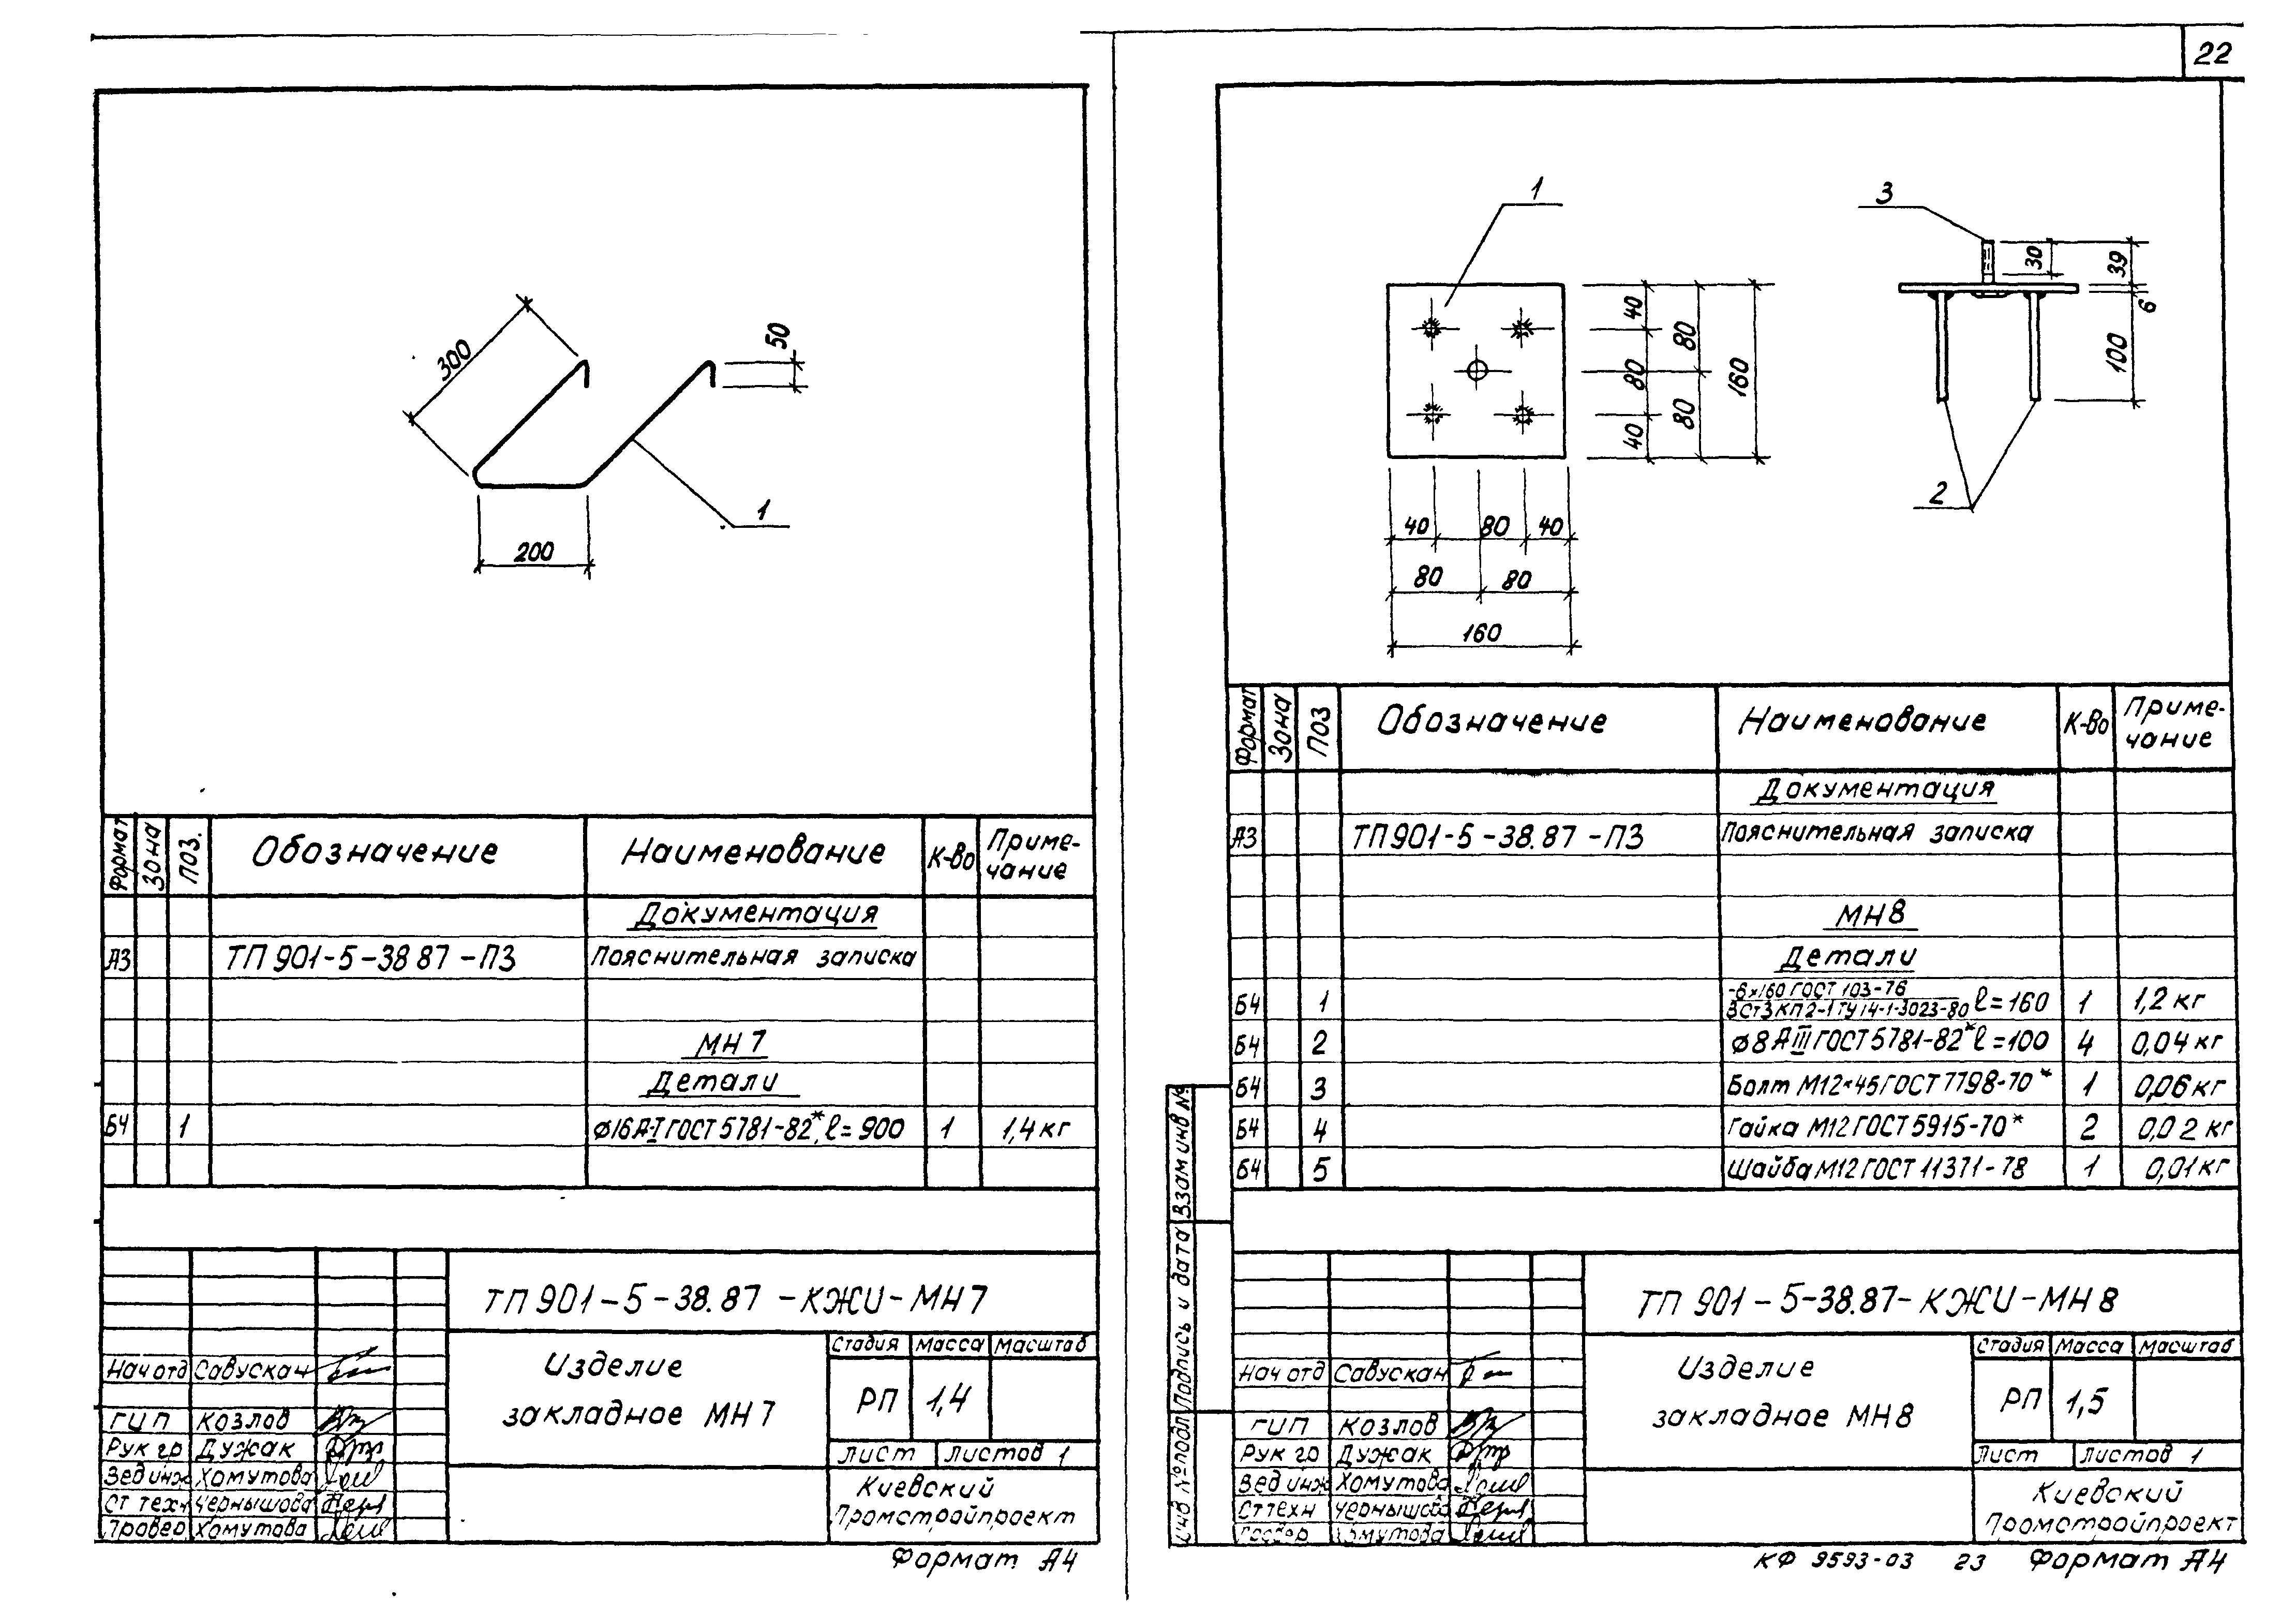 22
300
50
200
1
Формат
Зона
Поз.
Обозначение
Наименование
К-во
Приме-
чание
Документация
А3 ТП 901-5-38 87 -ПЗ Пояснительная записка
МН 7
Детали
Б4 1 ф16 А-I ГОСТ 5781-82*, ℓ=900 1 1,4 кг
ТП 901-5-38.87 -КЖИ-МН 7
Изделие
закладное МН 7
Стадия Масса Масштаб
РП 1,4
Лист Листов 1
Нач отд Савускан
ГИП Козлов
Рук гр Дужак
Вед инж Хомутова
Ст техн Чернышова
Провер Хомутова
Киевский
Промстройпроект
Формат А4
1
3
40
80
40
80
80
160
40 80 40
80 80
160
30
39
6
100
2
Формат
Зона
Поз
Обозначение
Наименование
К-во
Приме-
чание
Документация
А3 ТП 901-5-38.87 -ПЗ Пояснительная записка
МН 8
Детали
Б4 1 -6×160 ГОСТ 103-76 ВСт3КП2-1 ТУ 14-1-3023-80 ℓ=160 1 1,2 кг
Б4 2 ф8 А III ГОСТ 5781-82* ℓ=100 4 0,04 кг
Б4 3 Болт М12×45 ГОСТ 7798-70* 1 0,06 кг
Б4 4 Гайка М12 ГОСТ 5915-70* 2 0,02 кг
Б4 5 Шайба М12 ГОСТ 11371-78 1 0,01 кг
Взам инв №
Подпись и дата
Инв № подл
ТП 901-5-38.87-КЖИ-МН 8
Изделие
закладное МН 8
Стадия Масса Масштаб
РП 1,5
Лист Листов 1
Нач отд Савускан
ГИП Козлов
Рук гр Дужак
Вед инж Хомутова
Ст техн Чернышова
Хомутова
Киевский
Промстройпроект
КФ 9593-03 23 Формат А4